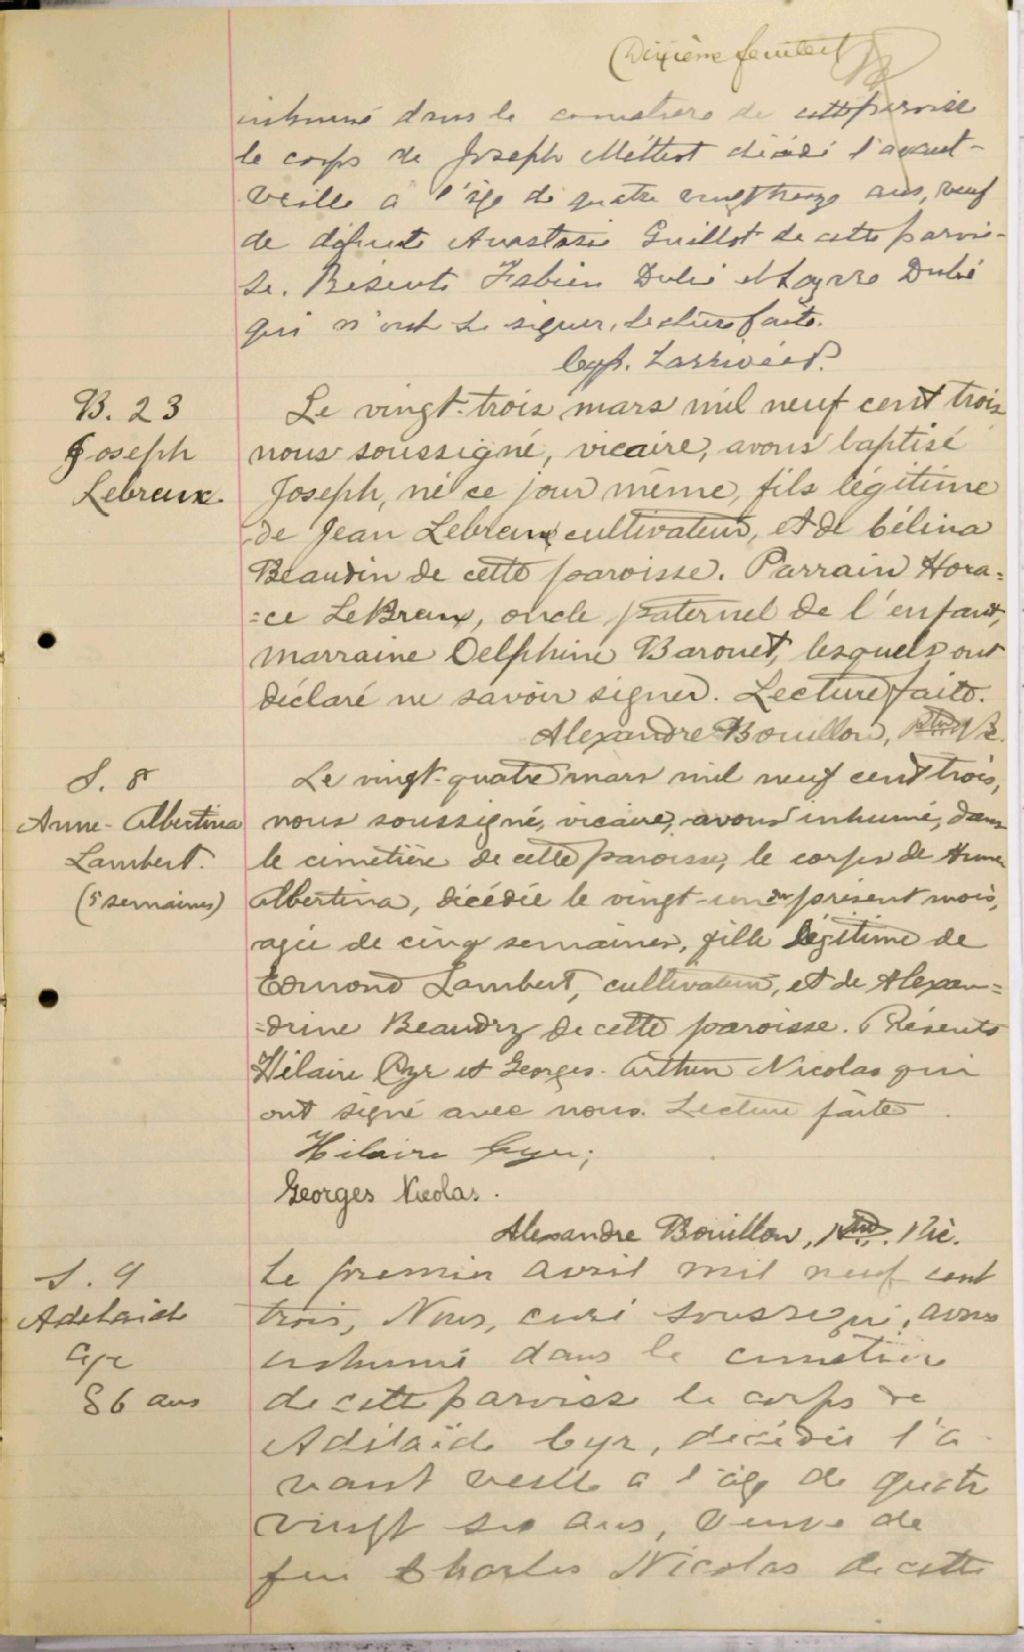 Dixième feuillet
inhumé dans le cimetière de cette paroisse
le corps de Joseph Méttot décédé l'avant-
veille à l'âge de quatre vingt treize ans, veuf
de défunte Anastasie Guillot de cette parois-
se. Présents Fabien Dubé et Dubé
qui n'ont su signer, lecture faite.
Cyp. Larrivée P.
B. 23
Joseph
Lebreux.
Le vingt-trois mars mil neuf cent trois
nous soussigné, vicaire, avons baptisé
Joseph, né ce jour même, fils légitime
de Jean Lebreux cultivateur, et de Célina
Beaudin de cette paroisse. Parrain Hora=
=ce LeBreux, oncle paternel de l'enfant,
marraine Delphine Barouet, lesquels ont
déclaré ne savoir signer. Lecture faite.
Alexandre Bouillon, Ptre V.
S. 8
Anne-Albertina
Lambert.
(5 semaines)
Le vingt-quatre mars mil neuf cent trois,
nous soussigné, vicaire, avons inhumé, dans
le cimetière de cette paroisse, le corps de Anne
Albertina, décédée le vingt-un du présent mois,
agée de cinq semaines, fille légitime de
Edmond Lambert, cultivateur, et de Alexan=
=drine Beaudry de cette paroisse. Présents
Hilaire Cyr et Georges-Arthur Nicolas qui
ont signé avec nous. Lecture faite.
Hilaire Cyr;
Georges Nicolas.
Alexandre Bouillon, Ptre. Vic.
S. 9
Adelaide
Cyr
86 ans
Le premier avril mil neuf cent
trois, Nous, curé soussigné, avons
inhumé dans le cimetière
de cette paroisse le corps de
Adélaïde Cyr, décédée l'a-
vant veille à l'âge de quatre
vingt six ans, veuve de
feu Charles Nicolas de cette